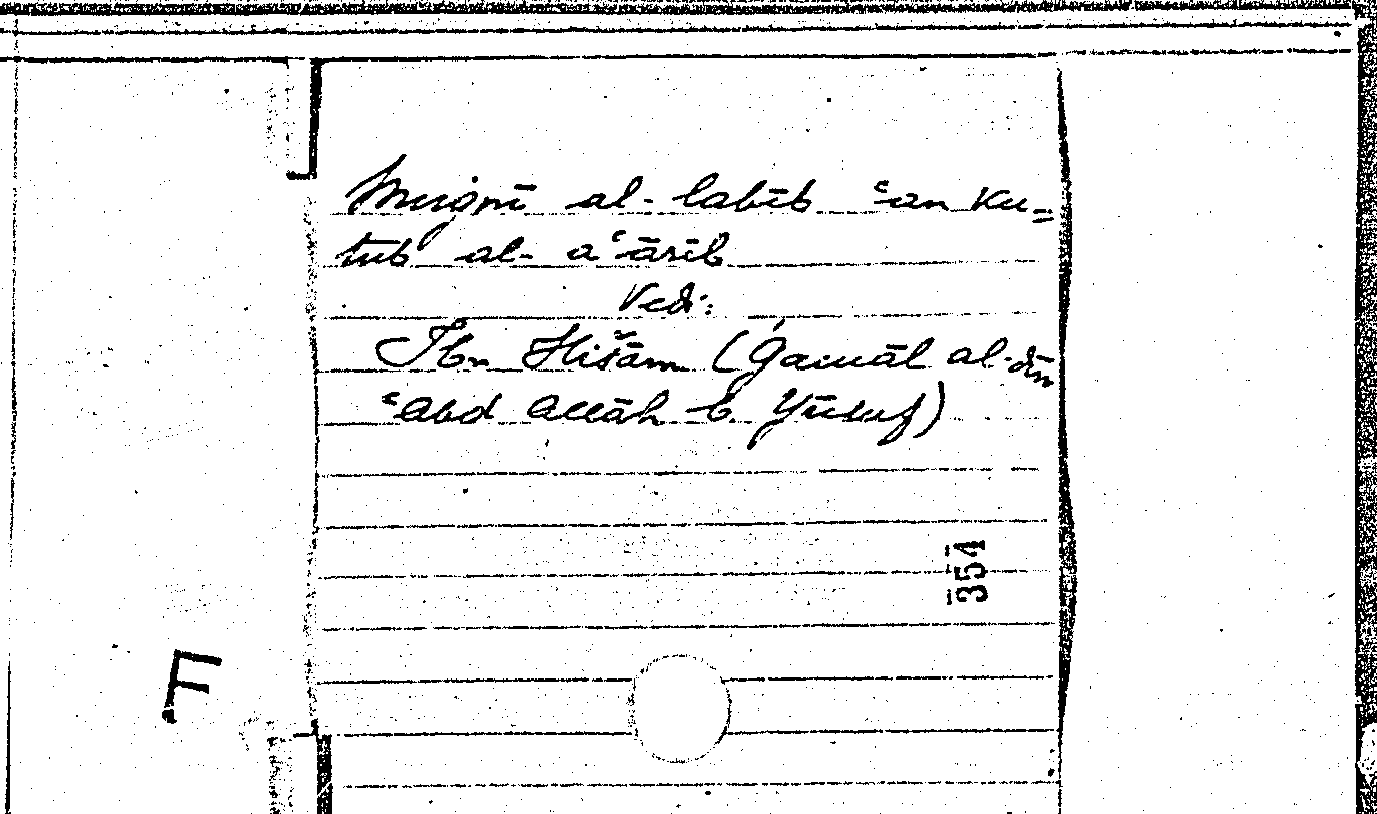 Muġnī al-labīb ʿan Ku=
tub al-aʿārīb
Vedi:
Ibn Hišām (Ǵamāl al-dīn
ʿAbd Allāh b. Yūsuf)
354
F